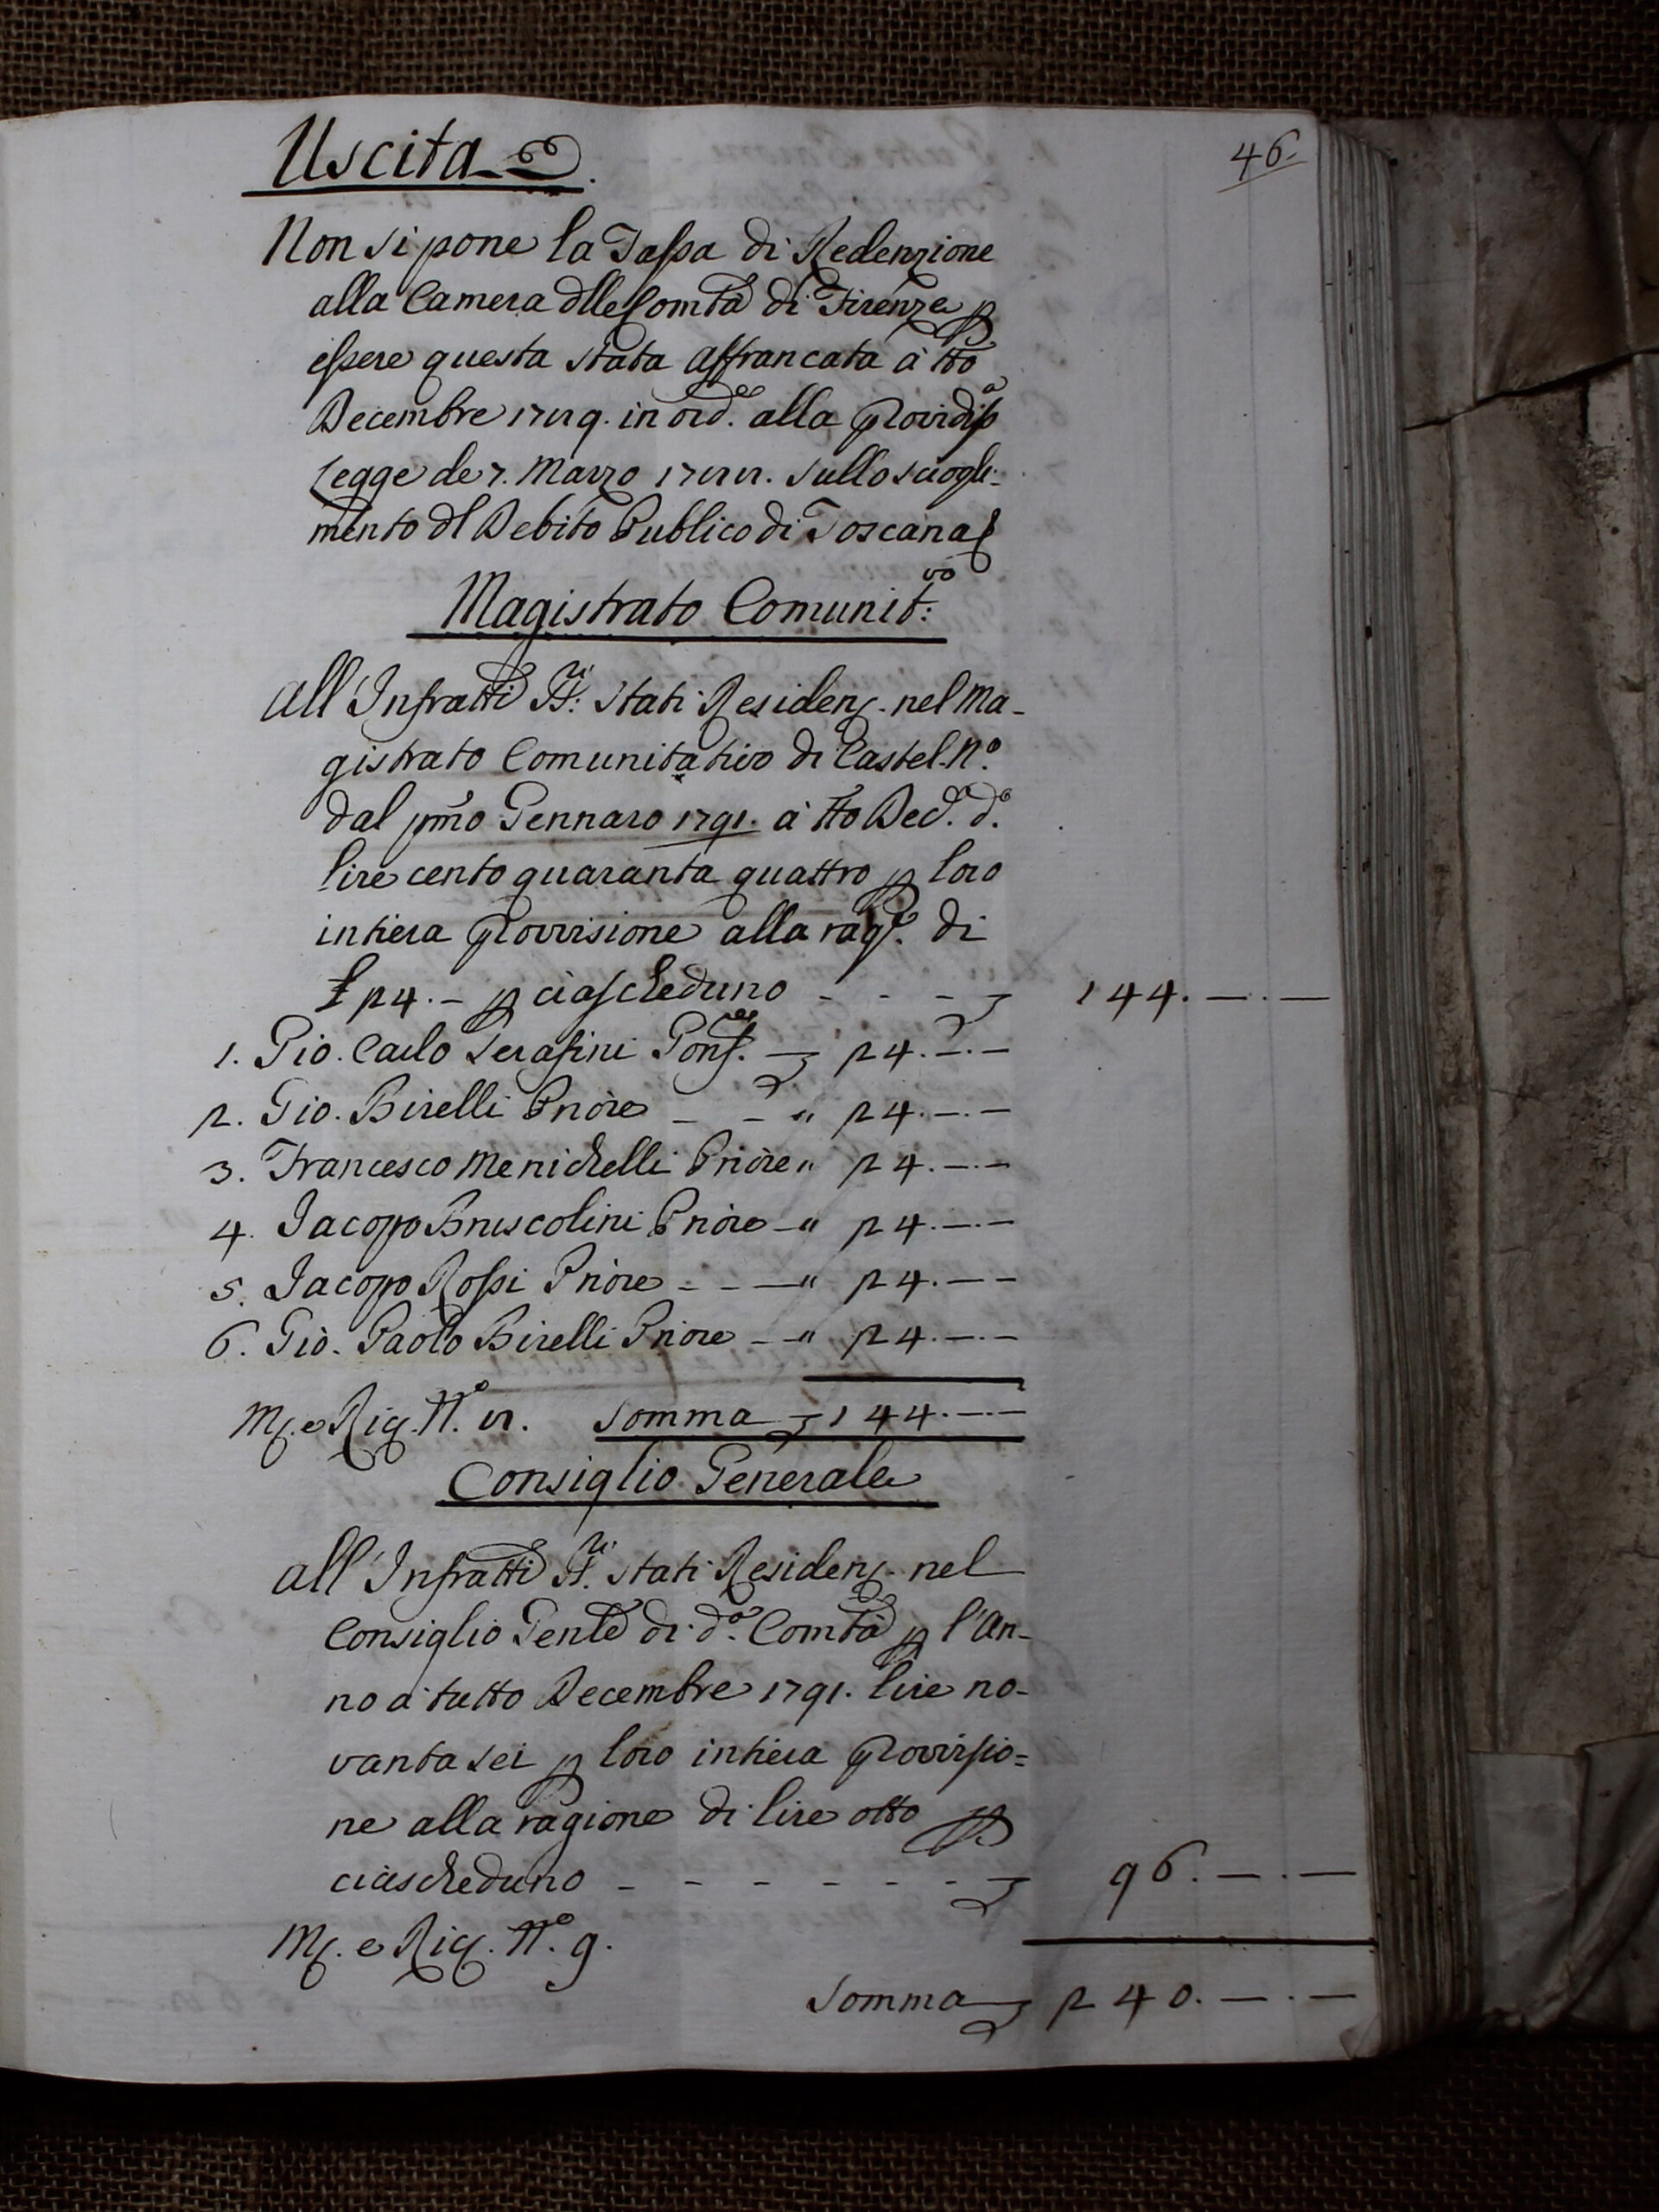 Uscita
46.
Non si pone la Tassa di Redenzione
alla Camera dlle Comtà di Firenze p
essere questa stata affrancata a tto
Decembre 1789. in ord.e alla Provid.a
Legge de 7. Marzo 1788. sullo sciogli-
mento dl Debito Publico di Toscana
Magistrato Comunit:vo
All' Infratti SS:ri stati Residenz. nel Ma-
gistrato Comunitativo di Castel N.o
dal pmo Gennaro 1791. a tto Dec.e d.o
lire cento quaranta quattro p loro
intiera Provvisione alla rag.e di
£ 24. - p ciascheduno - - - 144. — . —
1. Gio. Carlo Serafini Gonf.re — 24. — . —
2. Gio. Birelli Priore - - " 24. — . —
3. Francesco Menichelli Priore " 24. — . —
4. Jacopo Bruscolini Priore - " 24. — . —
5. Jacopo Rossi Priore - - — " 24. — —
6. Gio. Paolo Birelli Priore - - " 24. — . —
M. e Ric. N.o 8. Somma 144. — . —
Consiglio Generale
All' Infratti SS.ri stati Residenz. nel
Consiglio Genle di d.a Comtà p l'An-
no a tutto Decembre 1791. lire no-
vanta sei p loro intiera Provvisio=
ne alla ragione di lire otto p
ciascheduno - - - - - - - 96. — . —
M. e Ric. N.o 9.
Somma 240. — . —